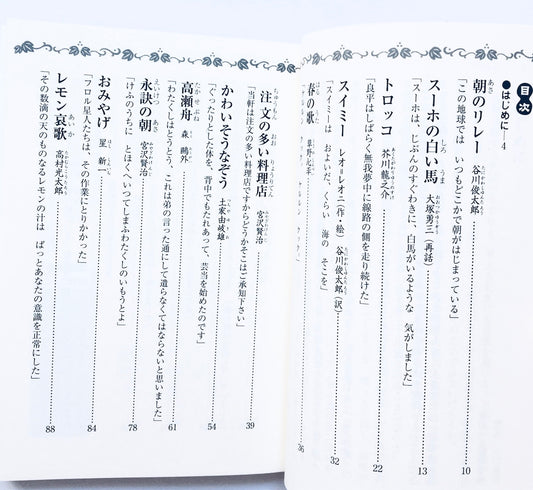 目次
●はじめに―4
朝のリレー 谷川俊太郎
「この地球では いつもどこかで朝がはじまっている」 10
スーホの白い馬 大塚勇三（再話）
「スーホは、じぶんのすぐわきに、白馬がいるような 気がしました」 13
トロッコ 芥川龍之介
「良平はしばらく無我夢中に線路の側を走り続けた」 22
スイミー レオ＝レオニ（作・絵） 谷川俊太郎（訳）
「スイミーは およいだ、くらい 海の そこを」 32
春の歌 草野心平
36
注文の多い料理店 宮沢賢治
「当軒は注文の多い料理店ですからどうかそこはご承知下さい」 39
かわいそうなぞう 土家由岐雄
「ぐったりとした体を、背中でもたれあって、芸当を始めたのです」 54
高瀬舟 森鷗外
「わたくしはとうとう、これは弟の言った通にして遣らなくてはならないと思いました」 61
永訣の朝 宮沢賢治
「けふのうちに とほくへいつてしまふわたくしのいもうとよ」 78
おみやげ 星新一
「フロル星人たちは、その作業にとりかかった」 84
レモン哀歌 高村光太郎
「その数滴の天のものなるレモンの汁は ぱっとあなたの意識を正常にした」 88